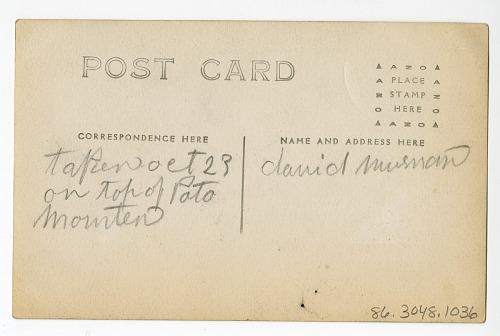 POST CARD
AZO
PLACE
STAMP
HERE
AZO
CORRESPONDENCE HERE
taken oct 23
on top of Poto
Mounten
NAME AND ADDRESS HERE
david
86.3048.1036